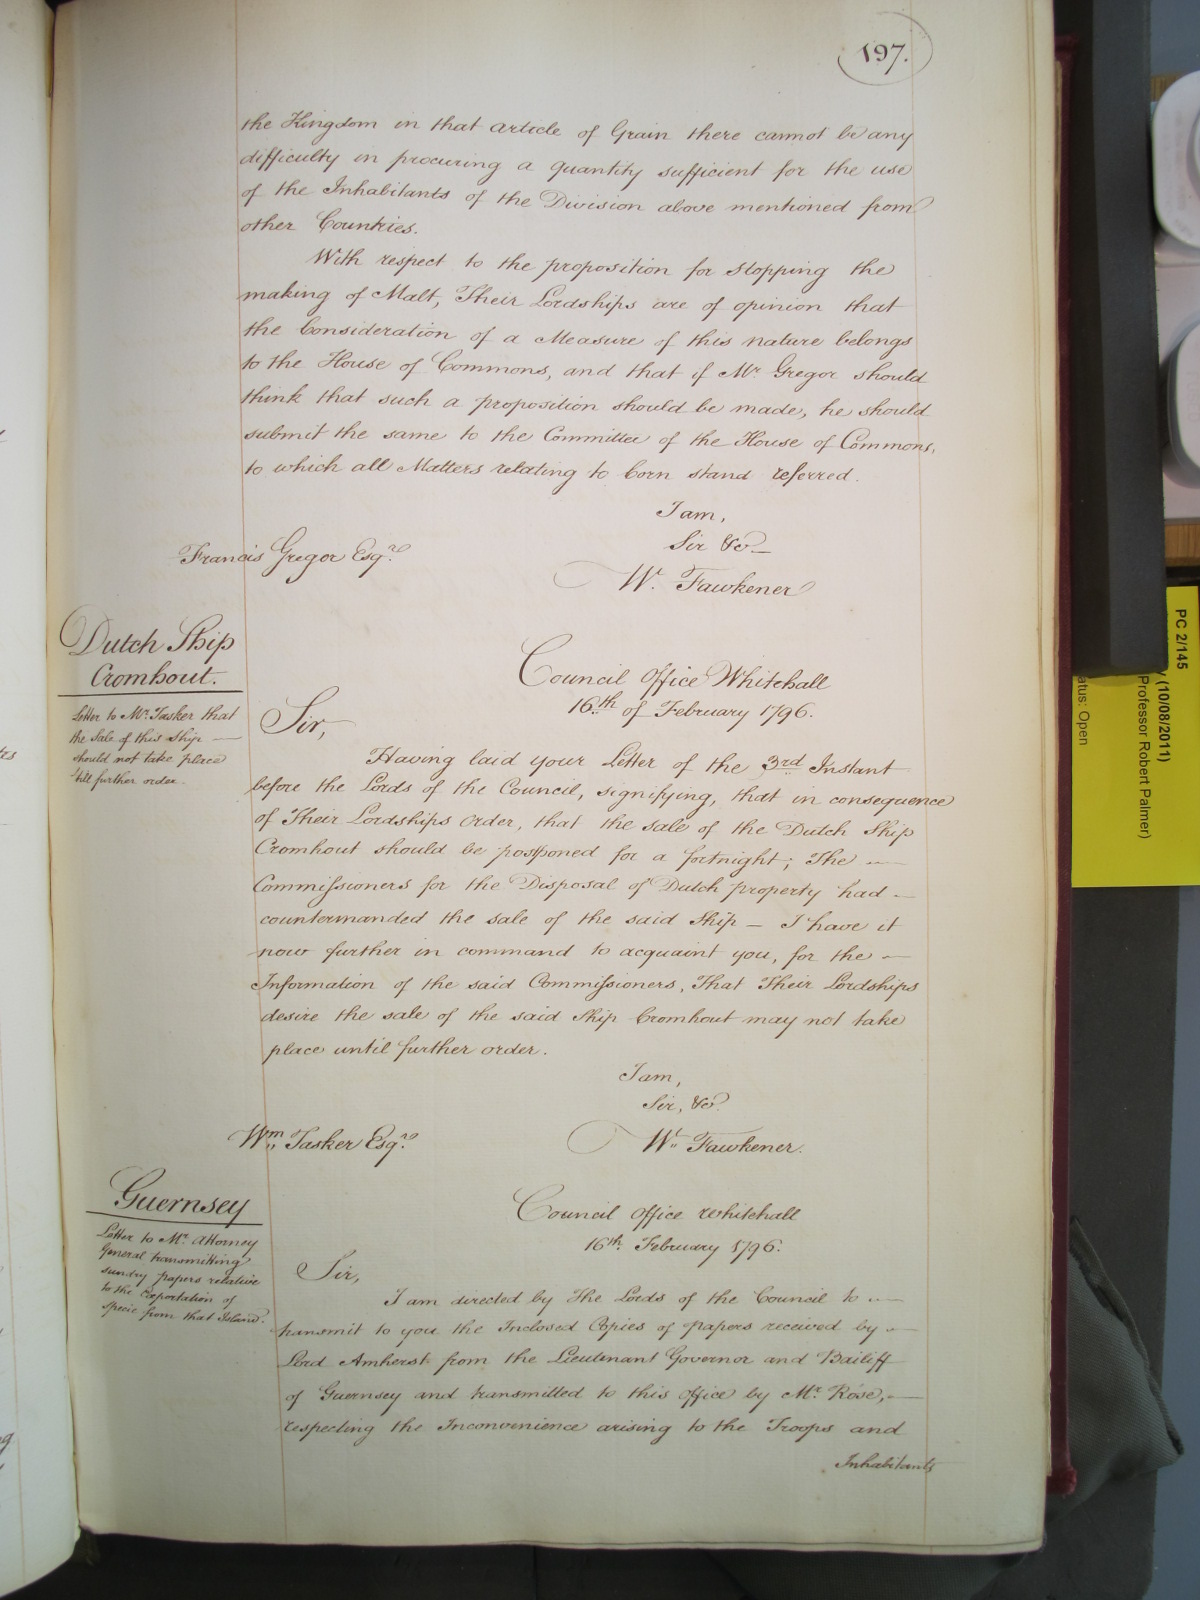 197.
the Kingdom in that article of Grain there cannot be any
difficulty in procuring a quantity sufficient for the use
of the Inhabitants of the Division above mentioned from
other Countries.
With respect to the proposition for stopping the
making of Malt, Their Lordships are of opinion that
the Consideration of a Measure of this nature belongs
to the House of Commons, and that if Mr. Gregor should
think that such a proposition should be made, he should
submit the same to the Committee of the House of Commons,
to which all Matters relating to Corn stand referred.
I am,
Sir &c.
Francis Gregor Esqr.
W. Fawkener
Dutch Ship
Cromhout.
Letter to Mr. Tasker that
the sale of this ship —
should not take place
till further order.
Council Office Whitehall
16th of February 1796.
Sir,
Having laid your Letter of the 3rd Instant
before the Lords of the Council, signifying, that in consequence
of Their Lordships Order, that the sale of the Dutch Ship
Cromhout should be postponed for a fortnight; The —
Commissioners for the Disposal of Dutch property had —
countermanded the sale of the said Ship — I have it
now further in command to acquaint you, for the —
Information of the said Commissioners, That Their Lordships
desire the sale of the said Ship Cromhout may not take
place until further order.
I am,
Sir, &c.
Wm. Tasker Esqr.
W. Fawkener.
Guernsey
Letter to Mr. Attorney
General transmitting
sundry papers relative
to the Exportation of
specie from that Island.
Council Office Whitehall
16th. February 1796.
Sir,
I am directed by The Lords of the Council to —
transmit to you the Inclosed Copies of papers received by —
Lord Amherst from the Lieutenant Governor and Bailiff
of Guernsey and transmitted to this Office by Mr. Rose, —
respecting the Inconvenience arising to the Troops and
Inhabitants
PC 2/145
(10/08/2011)
Professor Robert Palmer)
atus: Open
tes